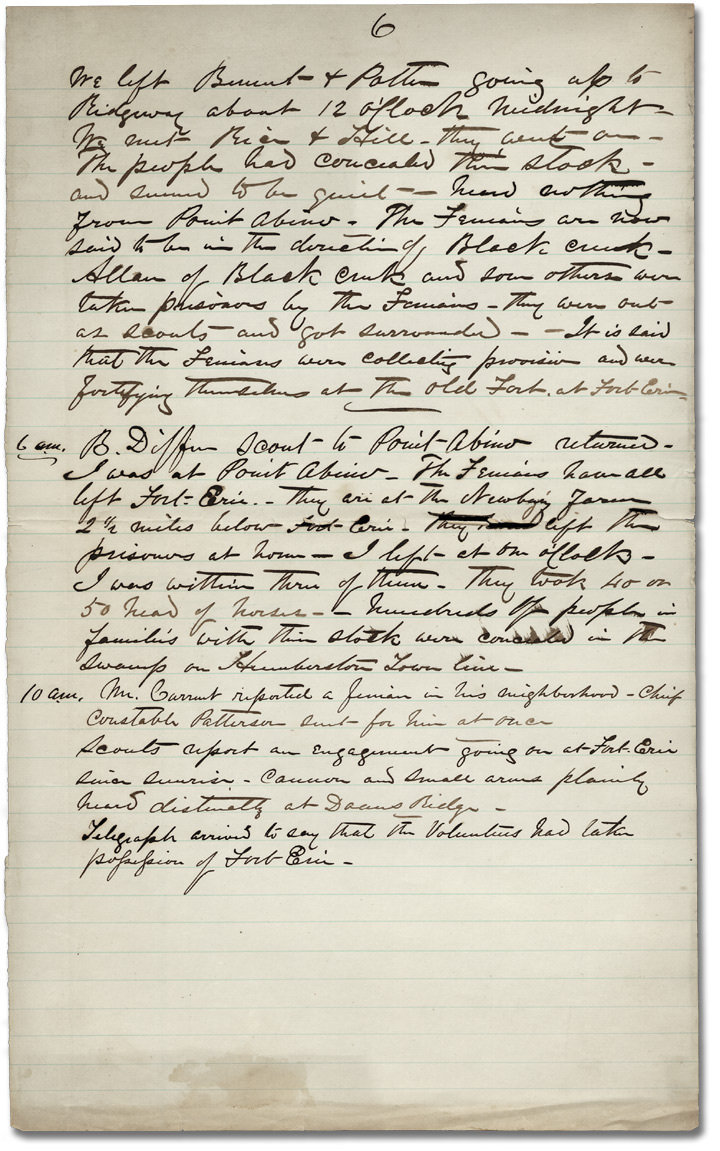 6
We left Bennet & Potter going up to
Ridgeway about 12 o'Clock Midnight -
We met & Hill - they went on -
The people had concealed their stock -
and seemed to be quiet - - heard nothing
from Point Abino - The Fenians are now
said to be in the direction of Black creek -
Allan of Black Creek and some others were
taken prisoners by the Fenians - they were out
as scouts and got surrounded - - It is said
that the Fenians were collecting provision and were
fortifying themselves at the old Fort. at Fort Erie -
6 a.m. B. Differ scout to Point Abino returned -
I was at Point Abino - The Fenians have all
left Fort-Erie. - they are at the Newbigging farm
2 1/2 miles below Fort Erie - they left the
prisoners at home - I left at one o'Clock -
I was within three of them - They took 40 or
50 head of horses - - Hundreds of people in
families with their stock were concealed in the
swamp on Humberston Town line -
10 a.m. Mr. reported a Fenian in his neighborhood - Chief
Constable Patterson sent for him at once
Scouts report an engagement going on at Fort Erie
since sunrise - Cannon and small arms plainly
heard distinctly at Doans Ridge -
Telegraph arrived to say that the Volunteers had taken
possession of Fort Erie -